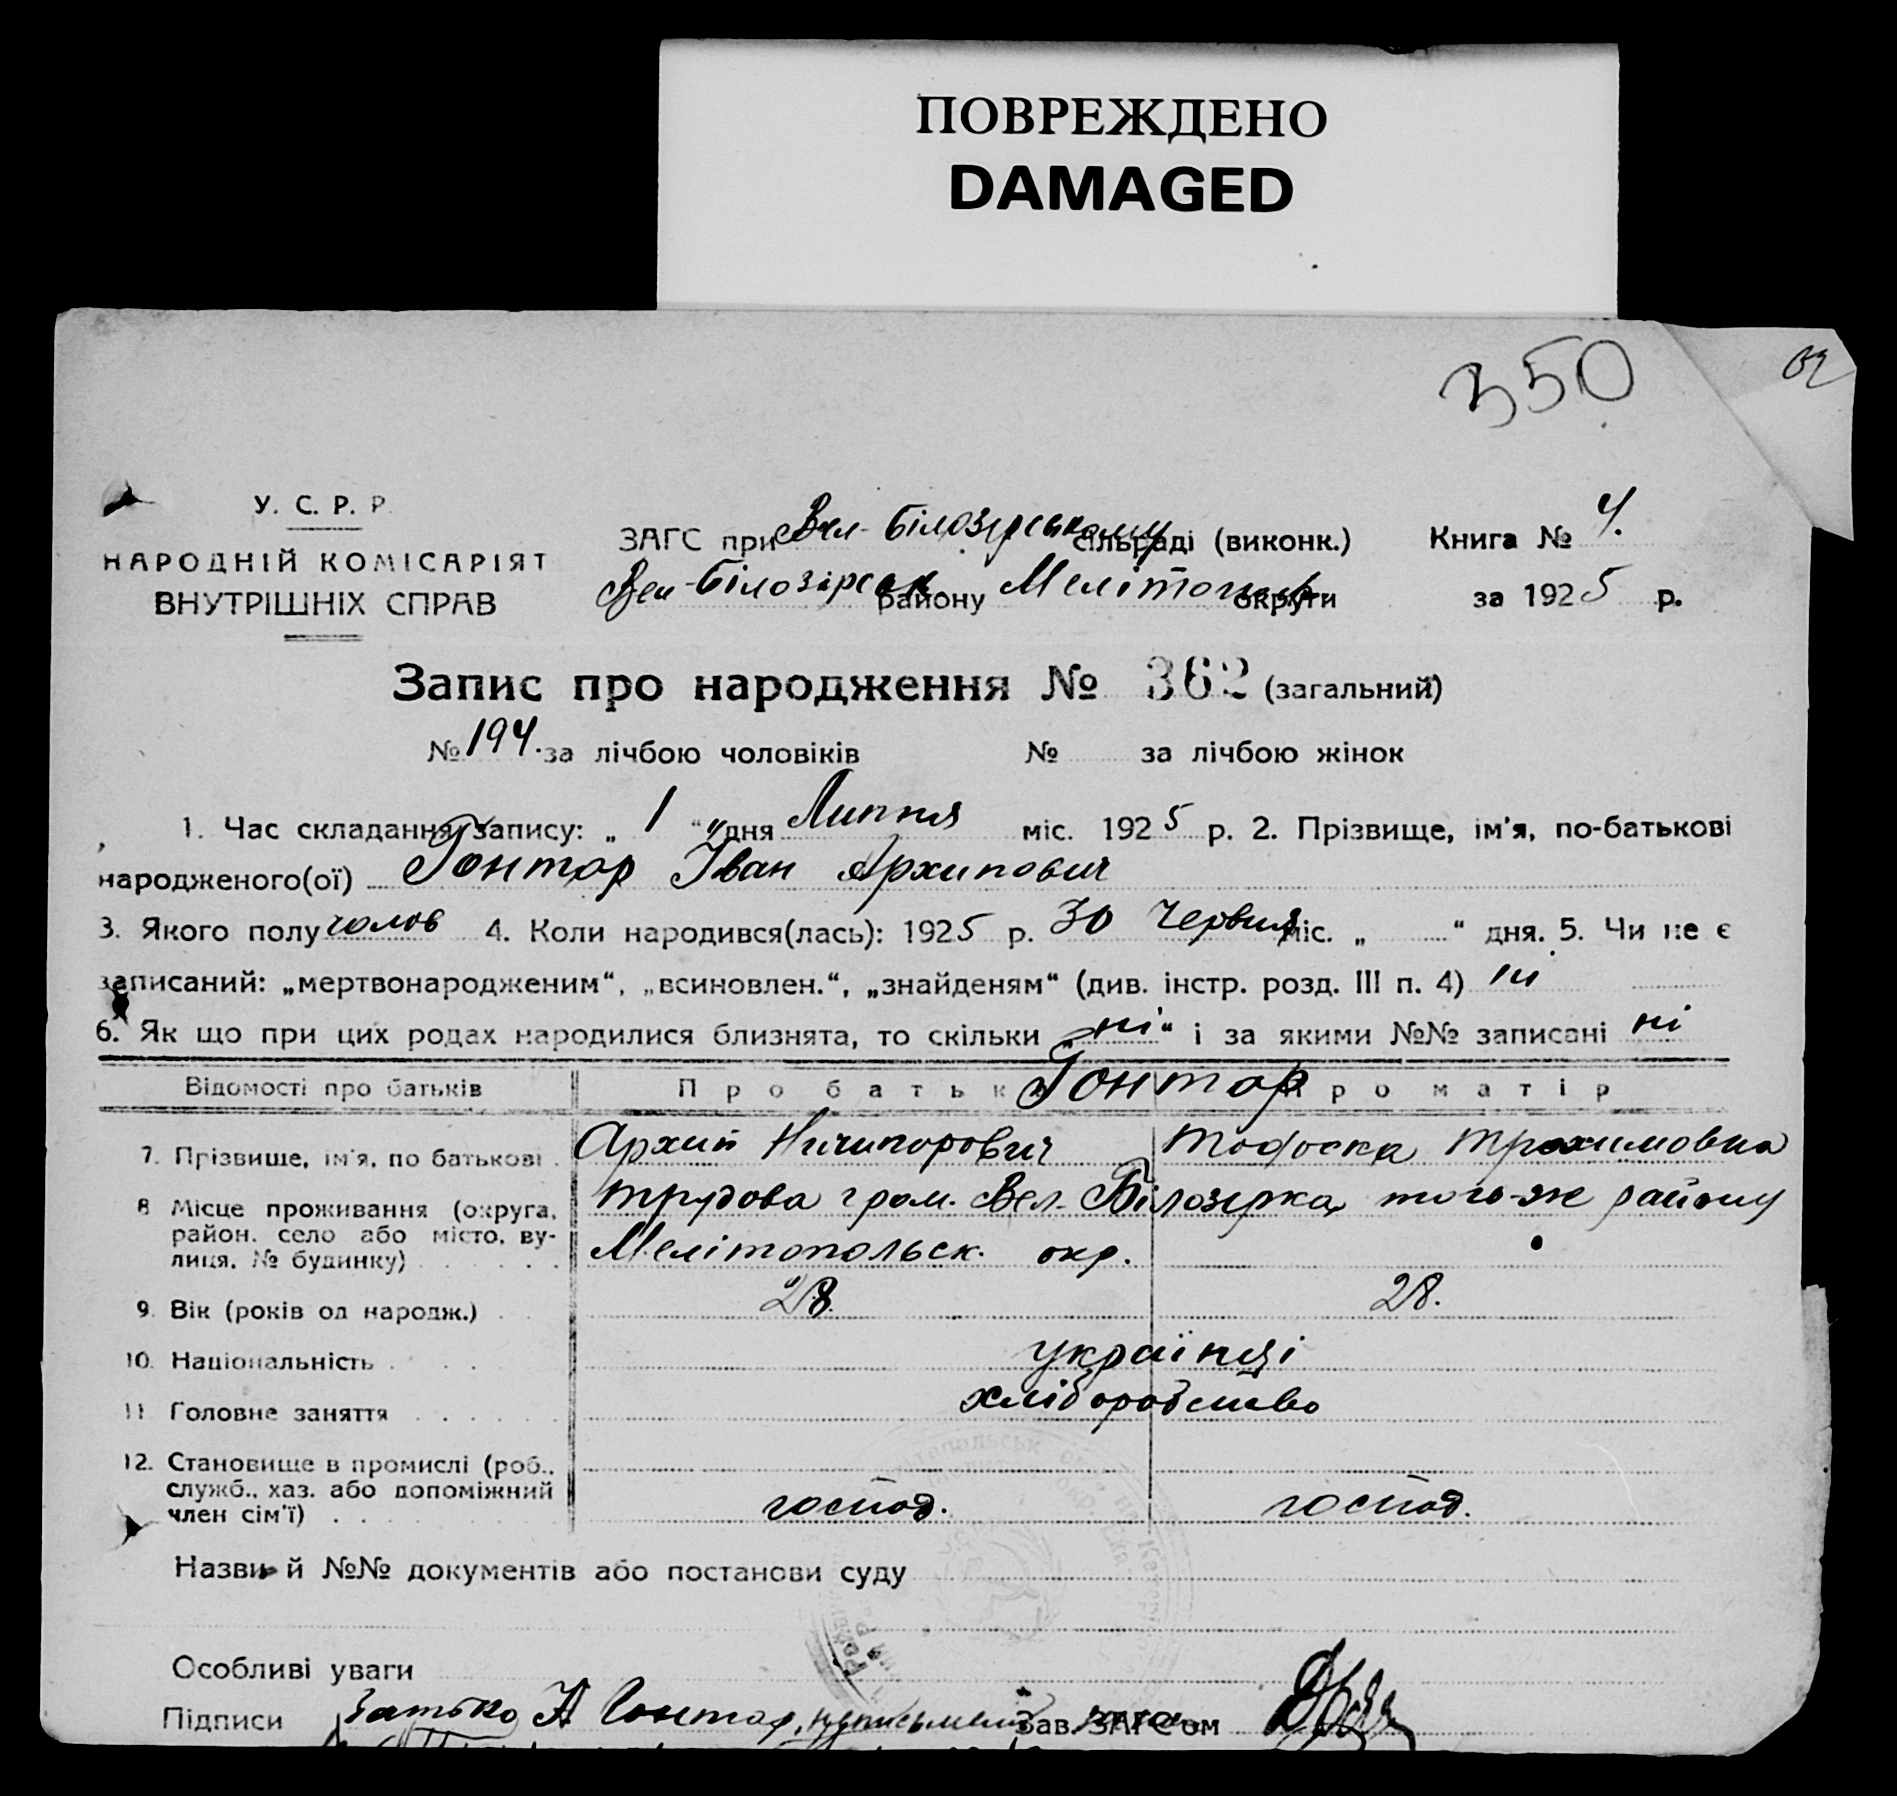 ПОВРЕЖДЕНО
DAMAGED
350
У. С. Р. Р.
НАРОДНІЙ КОМІСАРІЯТ
ВНУТРІШНІХ СПРАВ
ЗАГС при Вел-Білозерському сільраді (виконк.) Книга № 4.
Вел-Білозірськ району Мелітопільс округи за 1925 р.
Запис про народження № 362 (загальний)
№ 194. за лічбою чоловіків № за лічбою жінок
1. Час складання запису: „ 1 “ дня Липня міс. 1925 р. 2. Прізвище, ім'я, по-батькові
народженого(ої) Гонтар Іван Архипович
3. Якого полу чолов 4. Коли народився(лась): 1925 р. 30 Червня міс. „ “ дня. 5. Чи не є
записаний: „мертвонародженим“, „всиновлен.“, „знайденям“ (див. інстр. розд. III п. 4) ні
6. Як що при цих родах народилися близнята, то скільки „ні“ і за якими №№ записані ні
Відомості про батьків Про батька Гонтар Про матір
7. Прізвище, ім'я, по батькові . Архип Ничипорович Трохимовна
8 Місце проживання (округа, район. село або місто, вулиця. № будинку) трудова гром. Вел. Білозерка, того-ж району
Мелітопольск. окр.
9. Вік (років од народж.) 28. 28.
10. Національність українці
11 Головне заняття хліборобство
12. Становище в промислі (роб., служб., хаз. або допоміжний член сім'ї) господ. господ.
Назви й №№ документів або постанови суду
Особливі уваги
Підписи батько А Гонтар, Зав. ЗАГС'ом